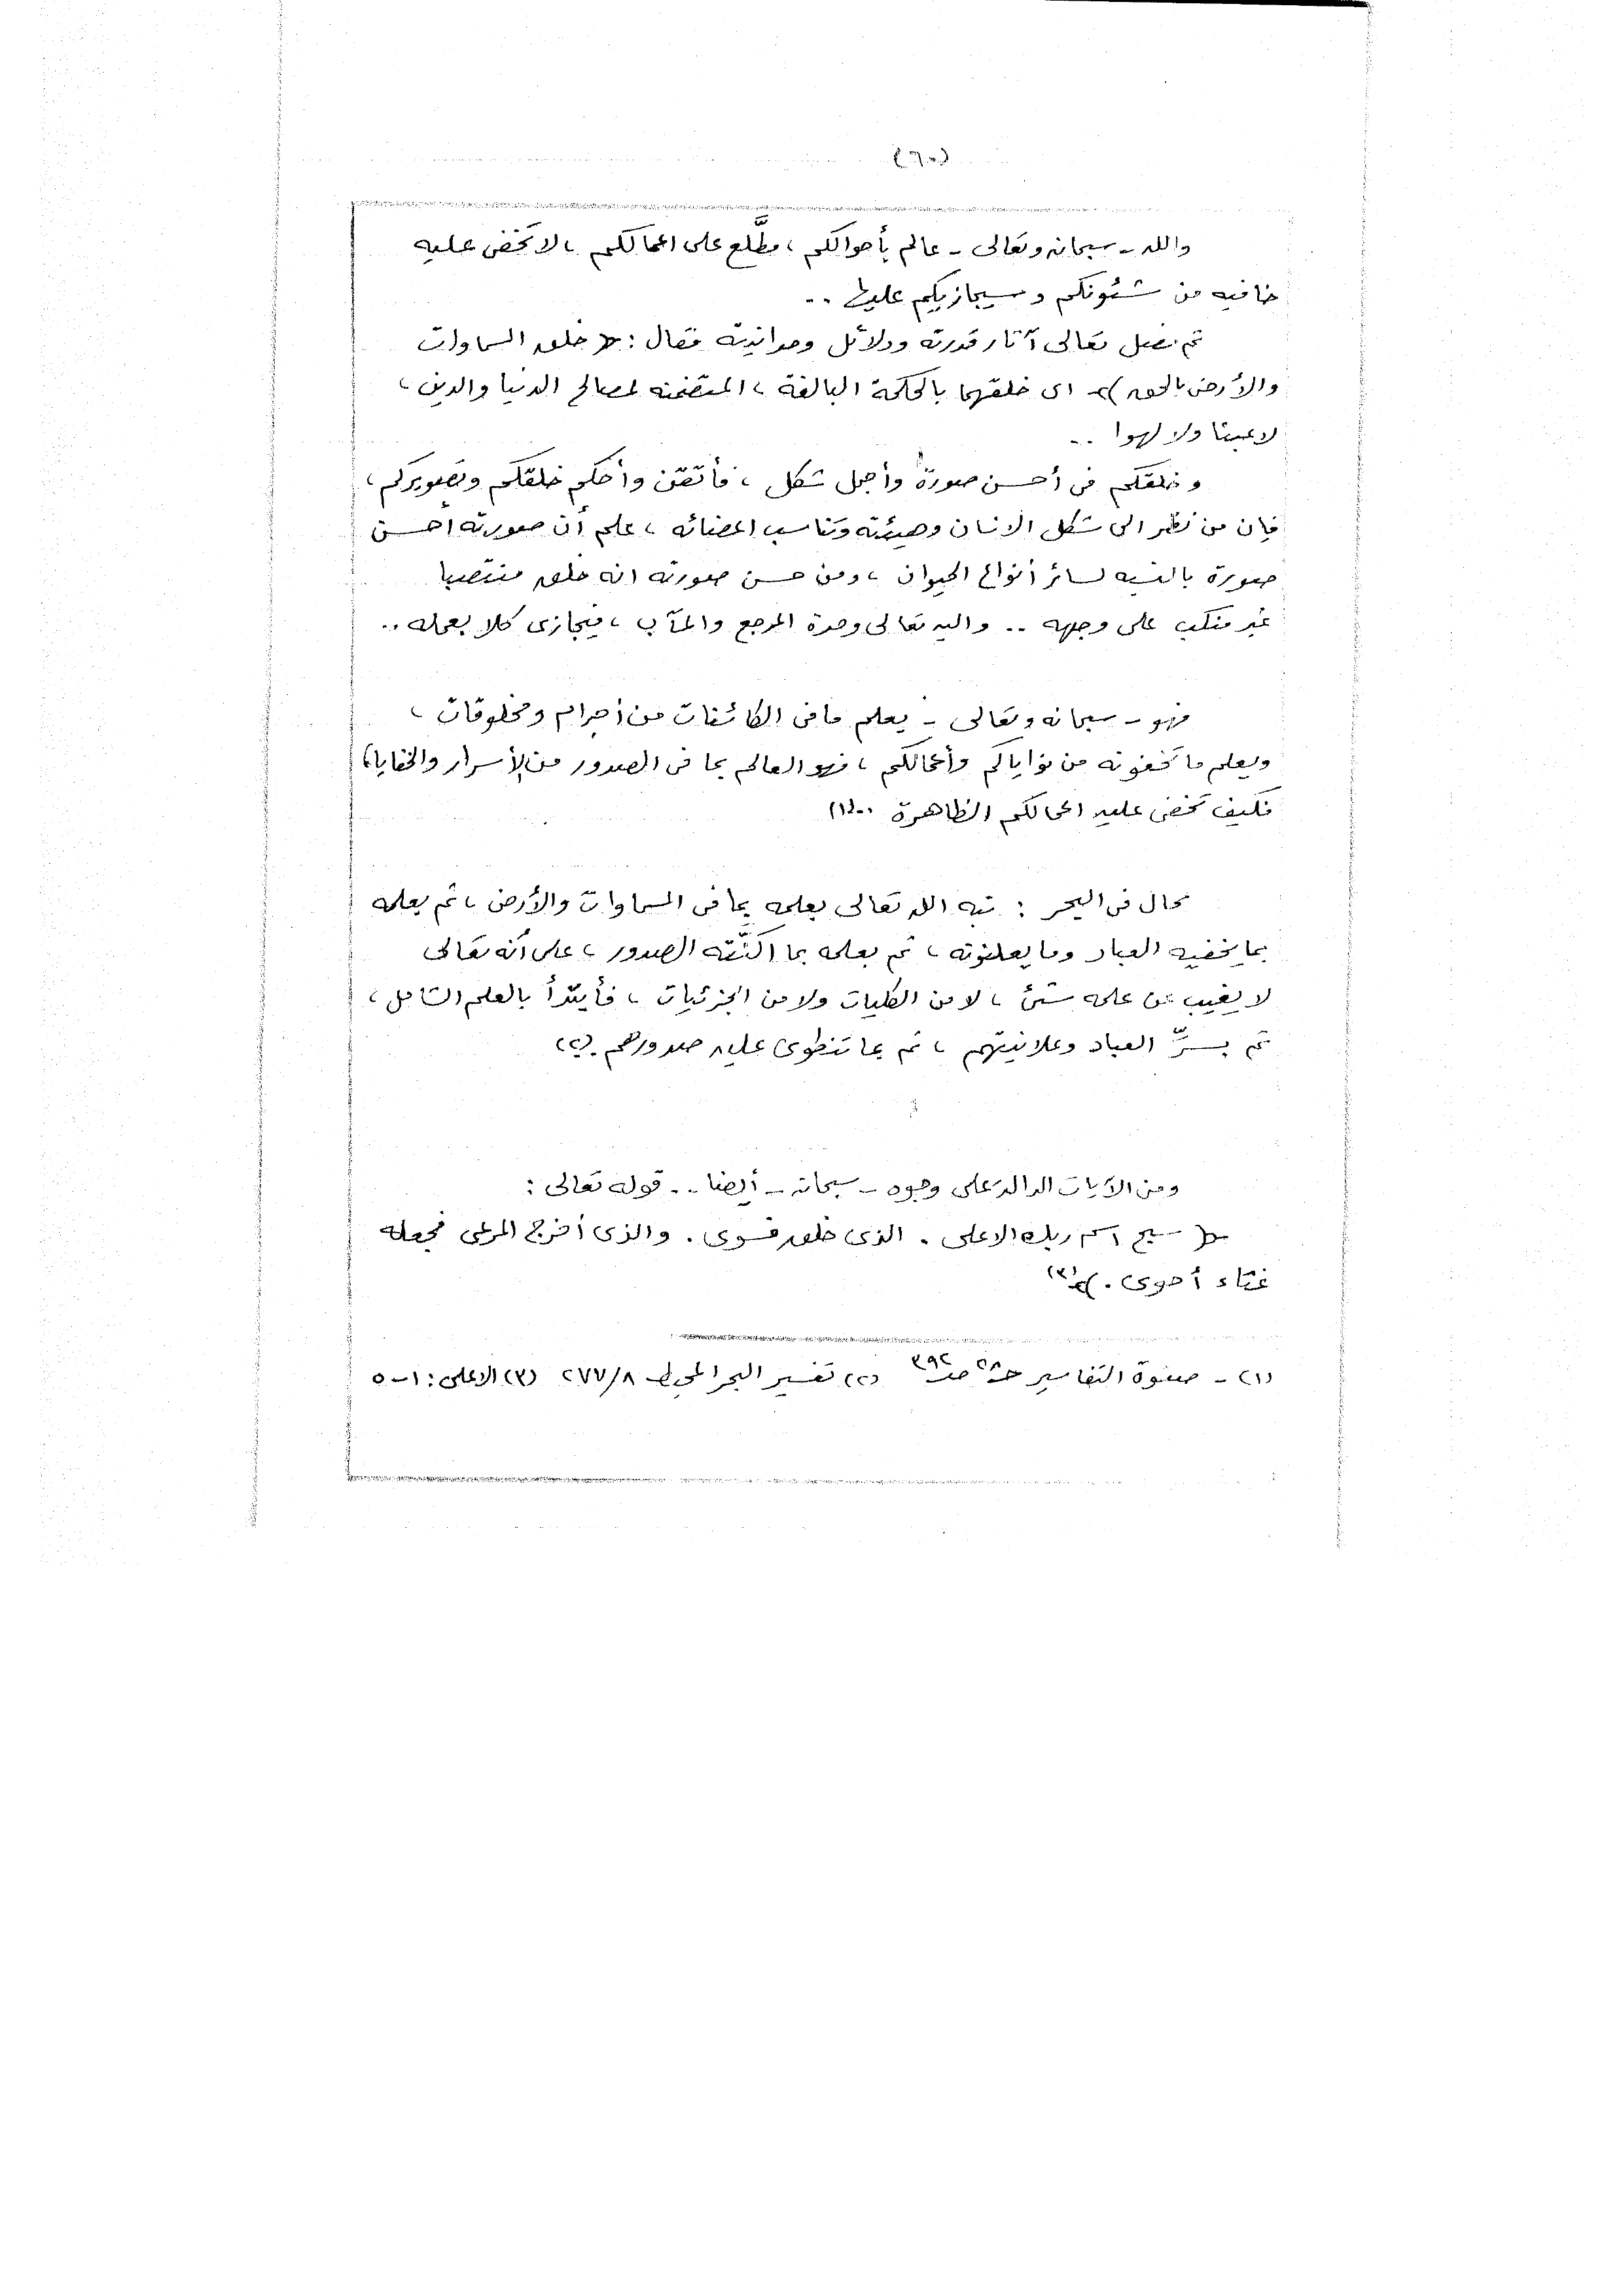 (٦٠)
والله - سبحانه وتعالى - عالم بأحوالكم ، مطَّلع على اعمالكم ، لا تخفى عليه
خافيه من شئونكم وسيجازيكم عليها ..
ثم فصل تعالى آثار قدرته ودلائل وحدانيته فقال : ﴿ خلق السماوات
والأرض بالحق ﴾ اى خلقهما بالحكمة البالغة ، المتضمنه لمصالح الدنيا والدين ،
لا عبثا ولا لهوا ..
وخلقكم فى أحسن صورة وأجمل شكل ، فأتقن وأحكم خلقكم وتصويركم ،
فإن من نظر الى شكل الانسان وهيئته وتناسب اعضائه ، علم أن صورته أحسن
صورة بالنسبه لسائر أنواع الحيوان ، ومن حسن صورته انه خلق منتصبا
غير منكب على وجهه .. واليه تعالى وحده المرجع والمآب ، فيجازى كلا بعمله ..
فهو - سبحانه وتعالى - يعلم ما فى الكائنات من أجرام ومخلوقات ،
ويعلم ما تخفونه من نواياكم وأعمالكم ، فهو العالم بما فى الصدور من الأسرار والخفايا ،
فكيف تخفى عليه اعمالكم الظاهرة ..(١)
قال فى البحر : نبه الله تعالى بعلمه بما فى السماوات والأرض ، ثم بعلمه
بما يخفيه العباد وما يعلنونه ، ثم بعلمه بما اكنَّته الصدور ، على أنه تعالى
لا يغيب عن علمه شئ ، لا من الكليات ولا من الجزئيات ، فأبتدأ بالعلم الشامل ،
ثم بسرِّ العباد وعلانيتهم ، ثم بما تنطوى عليه صدورهم .(٢)
ومن الآيات الداله على وجوه - سبحانه - أيضا .. قوله تعالى :
﴿ سبح اسم ربك الاعلى . الذى خلق فسوى . والذى أخرج المرعى فجعله
غثاء أحوى . ﴾(٣)
(١) - صفوة التفاسير حـ٢٨ صـ٣٩٢ (٢) تفسير البحر المحيط ٢٧٧/٨ (٣) الاعلى : ١-٥